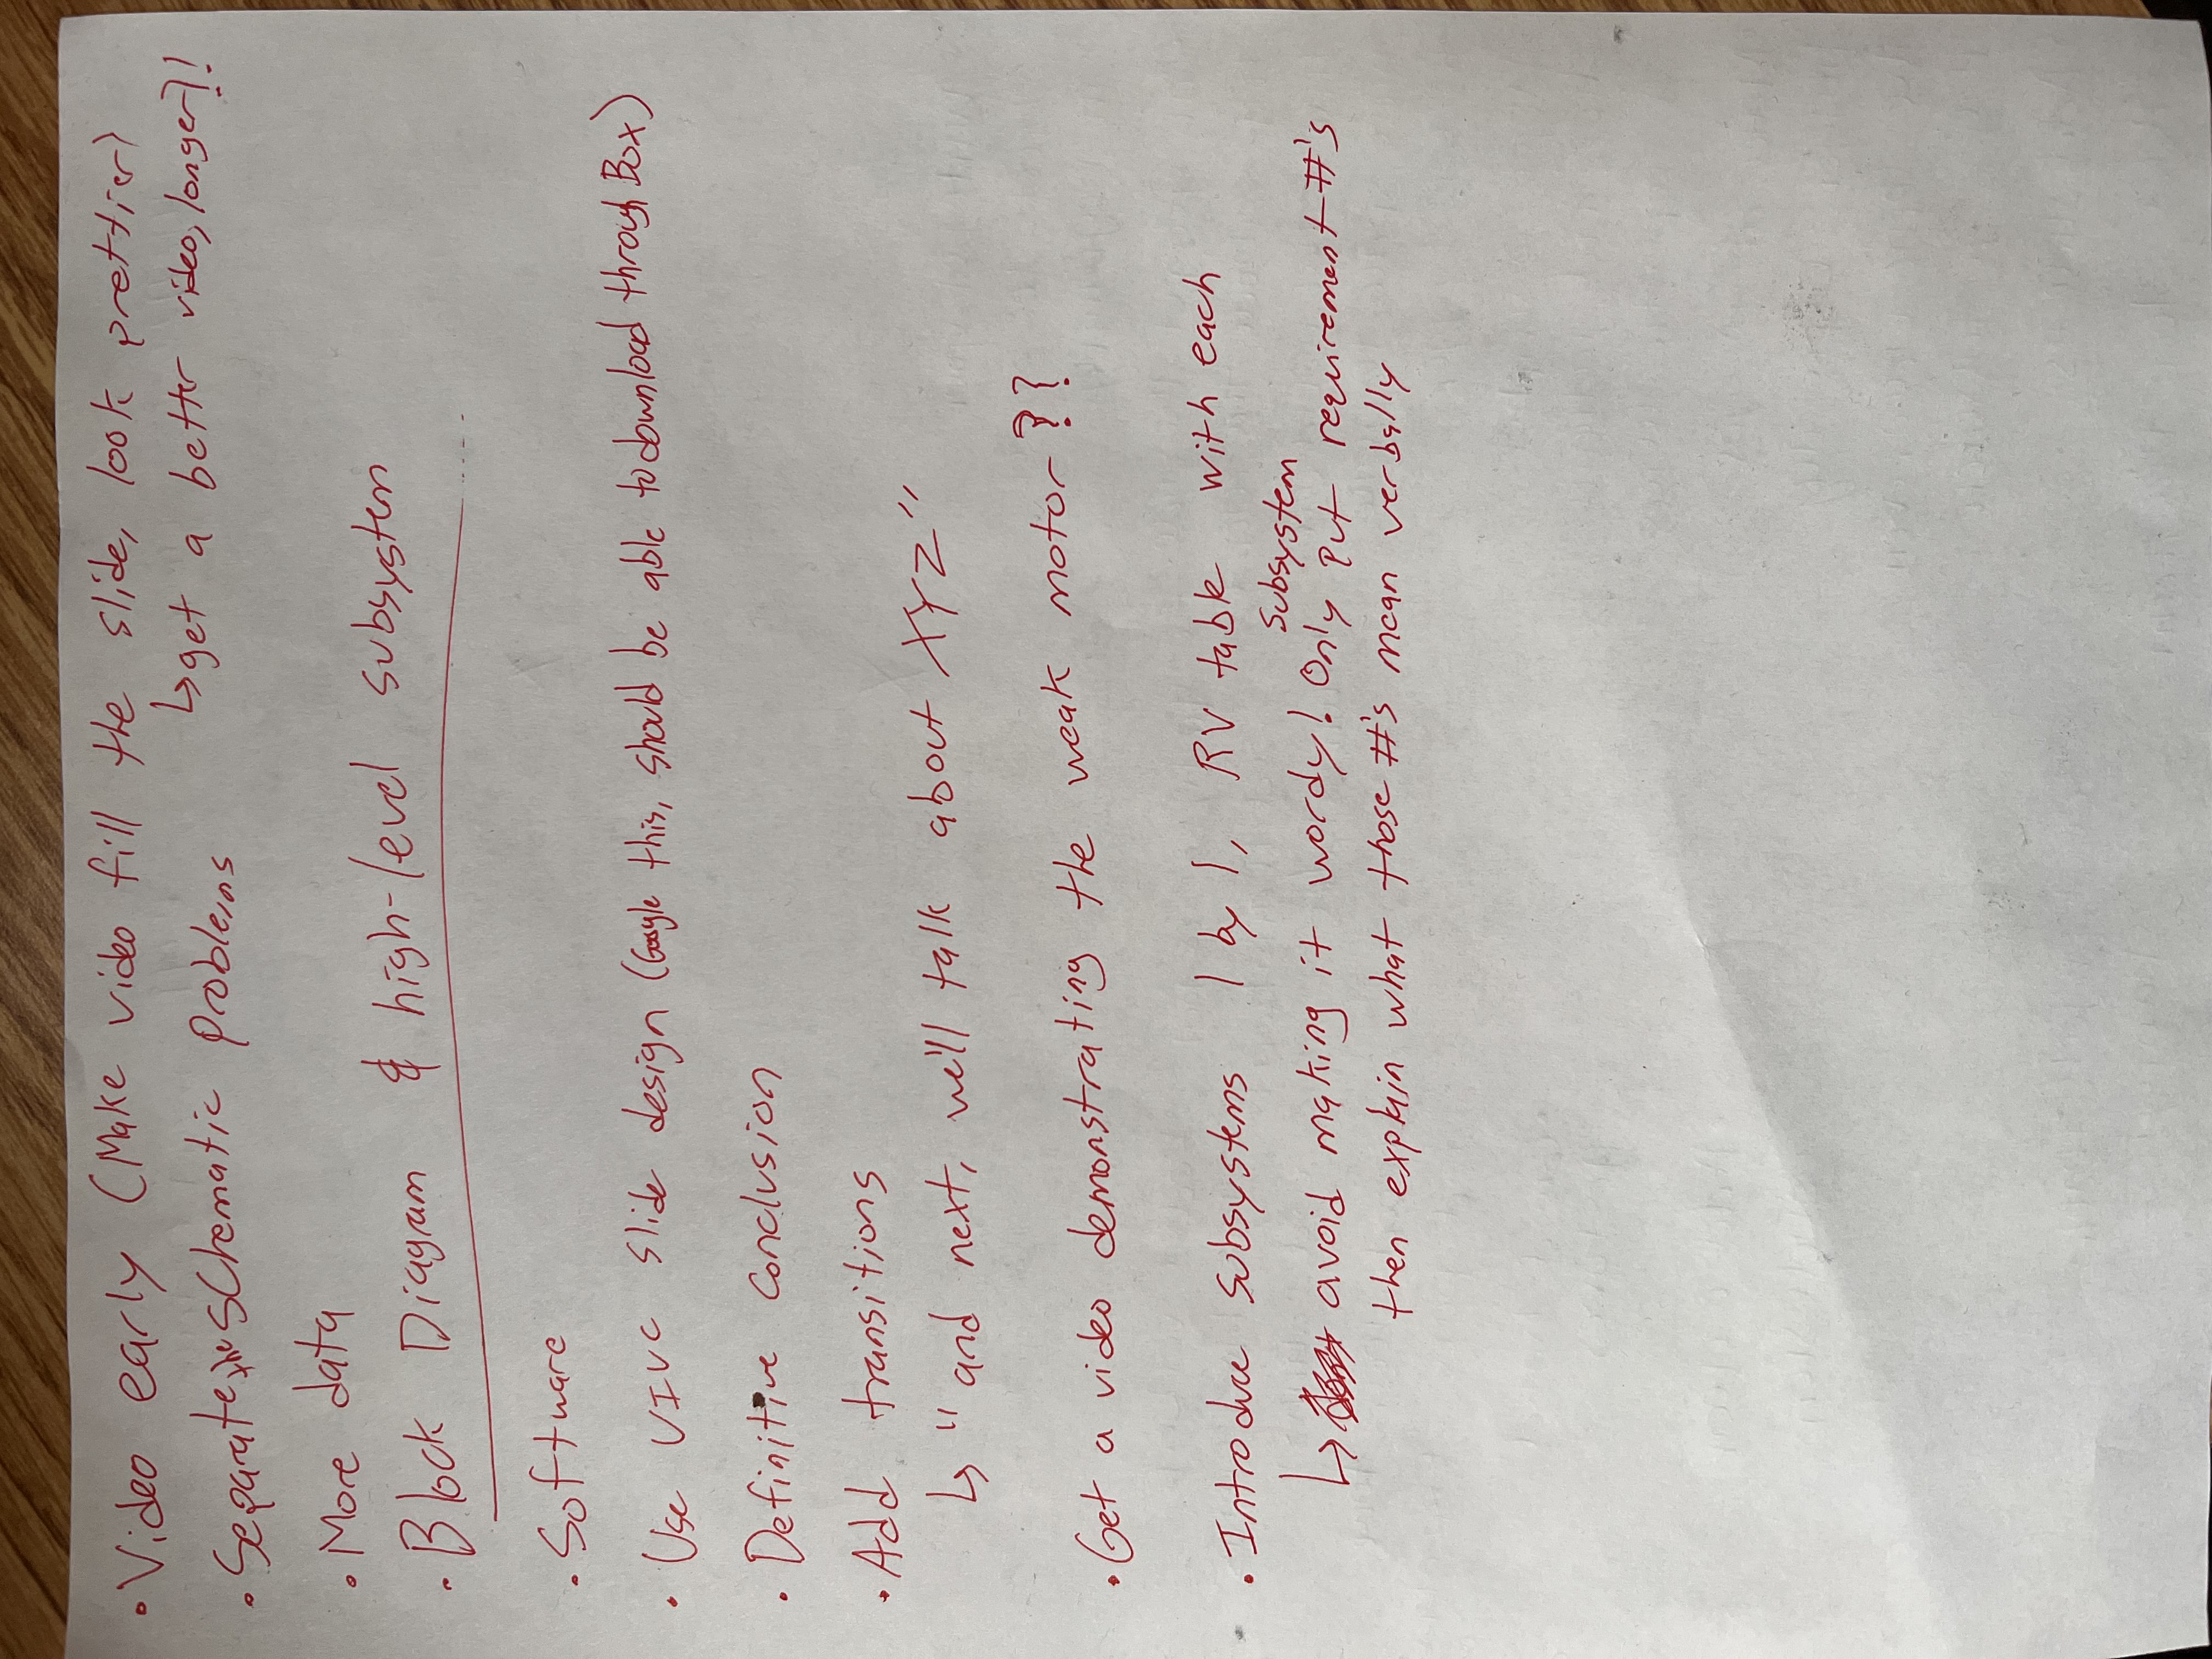 • Video early (Make video fill the slide, look prettier)
↳ get a better video, longer?!
• Separate the schematic problems
• More data
• Block Diagram & high-level subsystem
• Software
• Use VIVC slide design (Google this, should be able to download through Box)
• Definitive conclusion
• Add transitions
↳ "and next, we'll talk about XYZ"
• Get a video demonstrating the weak motor??
• Introduce subsystems 1 by 1, RV table with each
subsystem
↳ avoid making it wordy! Only put requirement #'s
then explain what those #'s mean verbally